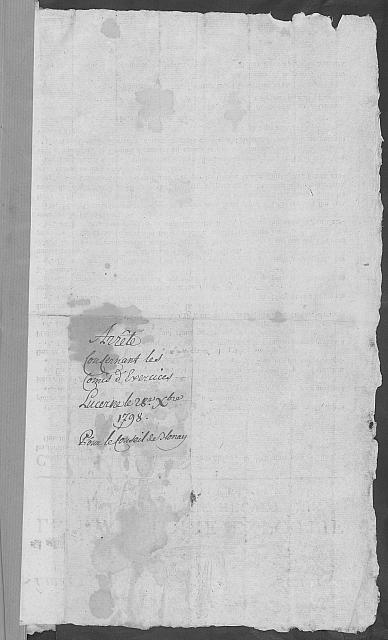 Arrêté
Consernant les
Comis d'Exercices
Lucerne le 28me Xbre
1798.
Pour le Conseil de Blonay